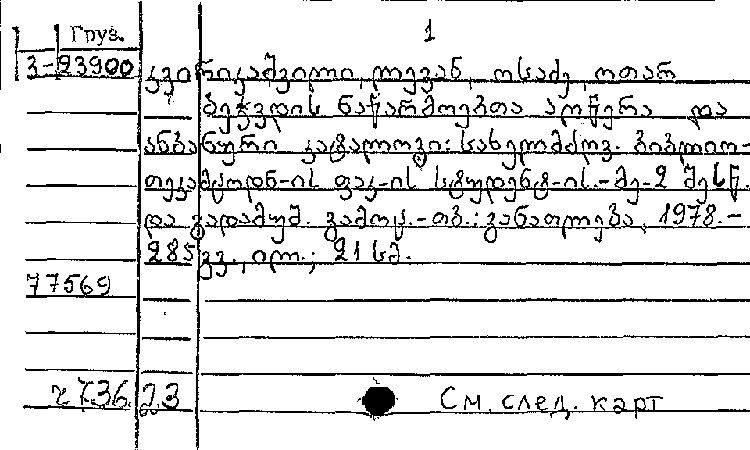 1
Груз.
3-23900 კვირიკაშვილი ლევან, ოსაძე ოთარ
ბეჭვდის ნაწარმოებთა აღწერა და
ანბანური კატალოგი: სახელმძღვ. ბიბლიო-
თეკამცოდნ-ის ფაკ-ის სტუდენტ-ის.-მე-2 შესწ.
და გადამუშ. გამოც.-თბ.: განათლება, 1978.-
285 გვ., ილ.; 21 სმ.
77569
736 23 См. след. карт